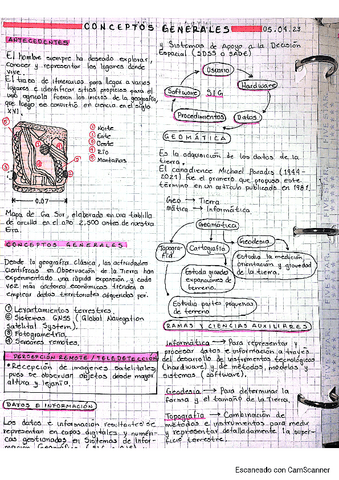 CONCEPTOS GENERALES
05.09.23
ANTECEDENTES
El hombre siempre ha deseado explorar,
conocer y representar los lugares donde
vive.
El trazo de itinerarios para llegar a varios
lugares e identificar sitios propicios para el
uso agrícola fueron los inicios de la geografía,
que luego se convirtió en ciencia en el siglo
XVI.
① Norte
② Este
③ Oeste
④ Río
⑤ Montañas
0.07
Mapa de Ga Sur, elaborado en una tablilla
de arcilla en el año 2,500 antes de nuestra
Era.
CONCEPTOS GENERALES
Desde la geografía clásica, las actividades
científicas en Observación de la Tierra han
experimentado una rápida expansión, y cada
vez más sectores económicos tienden a
emplear datos territoriales adquiridos por:
① Levantamientos terrestres.
② Sistemas GNSS (Global Navigation
Satelital System).
③ Fotogrametría.
④ Sensores remotos.
PERCEPCIÓN REMOTA / TELEDETECCIÓN
• Recepción de imágenes satelitales,
pues se observan objetos desde mayor
altura y lejanía.
DATOS E INFORMACIÓN
Los datos e información resultantes se
representan en capas digitales y numéri-
cas gestionadas en Sistemas de Infor-
y Sistemas de Apoyo a la Decisión
Espacial (SDSS o SADE)
Usuario
Hardware
Software
SIG
Procedimientos
Datos
GEOMÁTICA
Es la adquisición de los datos de la
tierra.
El canadiense Michael Paradis (1944-
2021) fue el primero que propuso este
término en un artículo publicado en 1981.
Geo → Tierra
Mática → Informática
Geomática
Topogra-
fía
Cartografía
Geodesia
Estudia la medición,
orientación y gravedad
de la tierra.
Estudia grandes
expansiones de
terreno.
Estudia partes pequeñas
de terreno
RAMAS Y CIENCIAS AUXILIARES
Informática → Para representar y
procesar datos e información a través
del desarrollo de instrumentos tecnológicos
(hardware) y de métodos, modelos y
sistemas (software).
Geodesia → Para determinar la
forma y el tamaño de la Tierra.
Topografía → Combinación de
métodos e instrumentos para medir
y representar detalladamente la super-
ficie terrestre.
Escaneado con CamScanner